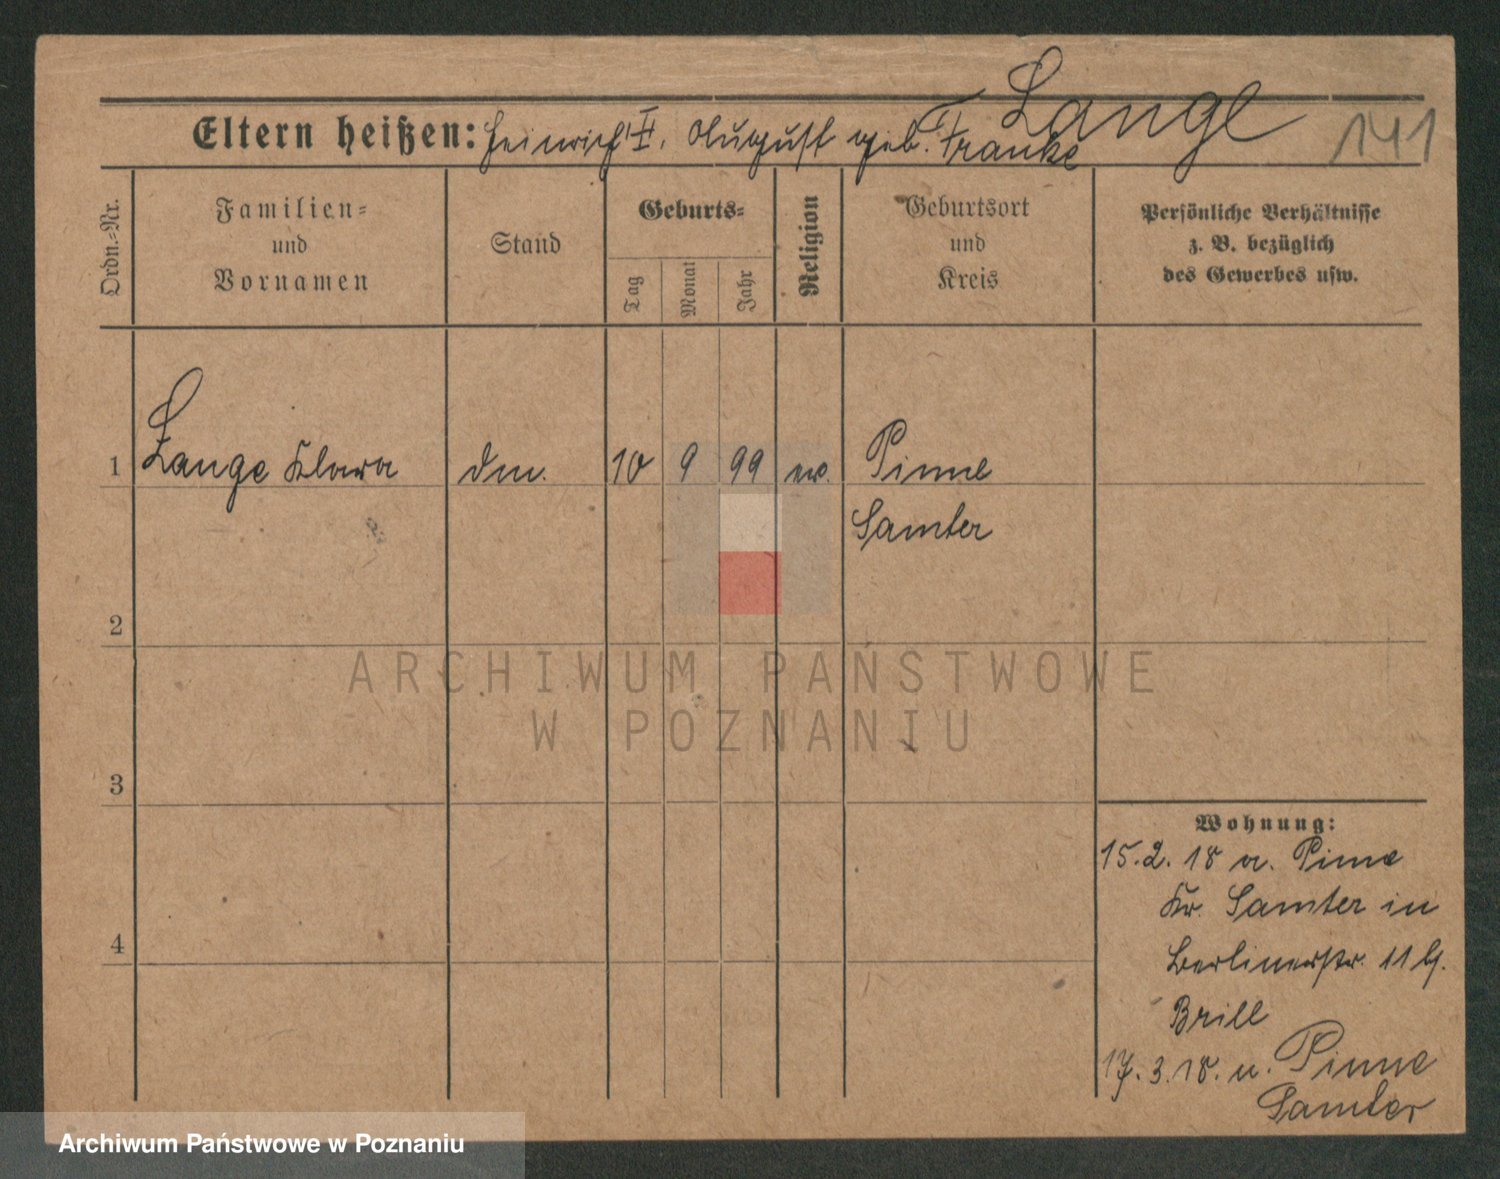 Lange
Eltern heißen: Heinrich II. August geb. Franke
141
Ordn.-Nr.
Familien-
und
Vornamen
Stand
Geburts-
Tag
Monat
Jahr
Religion
Geburtsort
und
Kreis
Persönliche Verhältnisse
z. B. bezüglich
des Gewerbes usw.
1 Lange Klara 10 9 99 ev. Pinne
Samter
2
3
4
Wohnung:
15.2.18 a. Pinne
Kr. Samter in
Berlinerstr. 11 b.
Brill
17.3.18. n. Pinne
Samter
ARCHIWUM PAŃSTWOWE
W POZNANIU
Archiwum Państwowe w Poznaniu